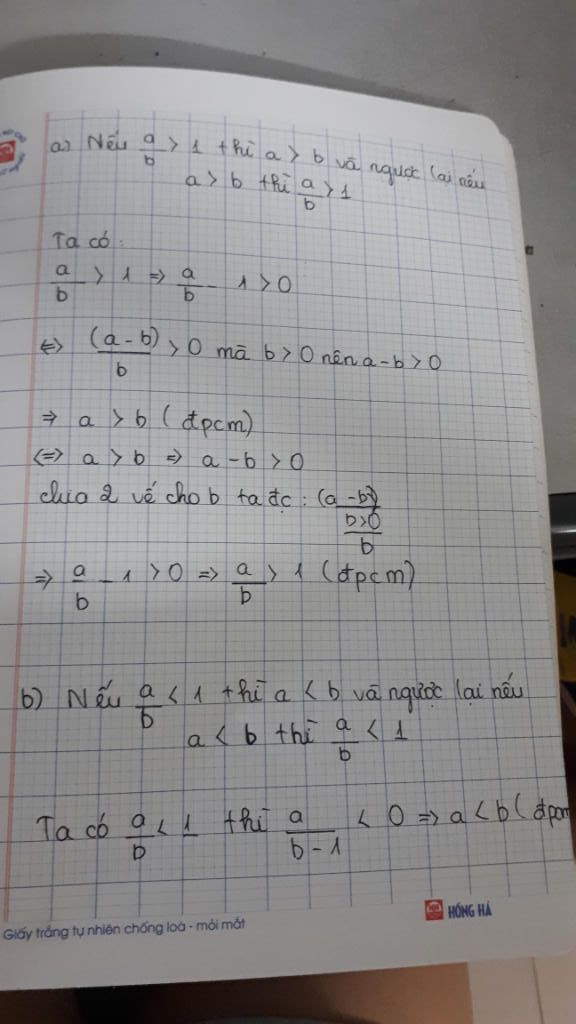 a) Nếu a/b > 1 thì a > b và ngược lại nếu
a > b thì a/b > 1
Ta có:
a/b > 1 => a/b - 1 > 0
<=> (a-b)/b > 0 mà b > 0 nên a-b > 0
=> a > b (đpcm)
<=> a > b => a-b > 0
chia 2 vế cho b ta đc: (a-b)/b>0/b
=> a/b - 1 > 0 => a/b > 1 (đpcm)
b) Nếu a/b < 1 thì a < b và ngược lại nếu
a < b thì a/b < 1
Ta có a/b < 1 thì a/b-1 < 0 => a < b (đpcm
HỒNG HÀ
Giấy trắng tự nhiên chống loá - mỏi mắt